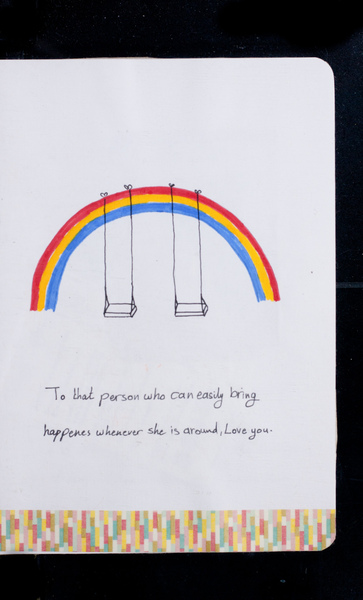 To that person who can easily bring
happenes whenever she is around, Love you.